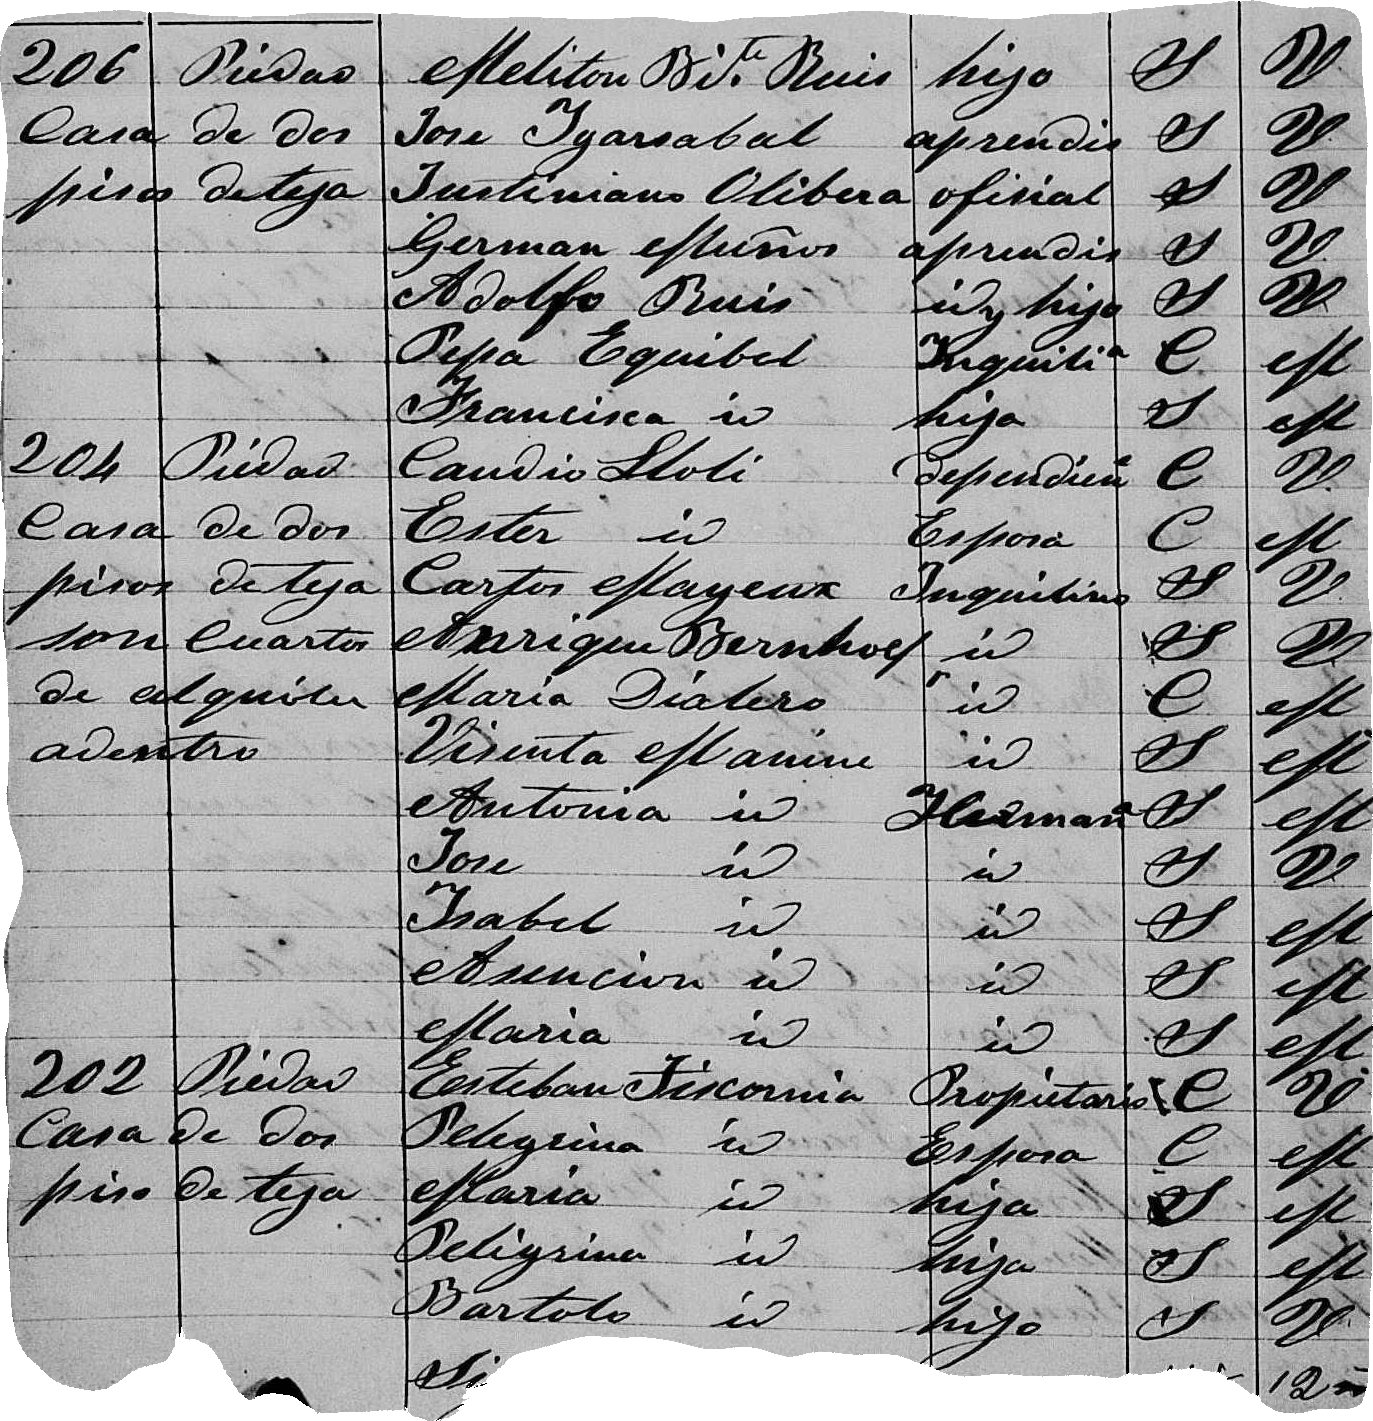 206 Piedad Meliton Bi.te Ruis hijo S V
Casa de dos Jose Ygarsabal aprendis S V
pisos de teja Justiniano Olibera ofisial S V
German Muños aprendis S V
Adolfo Ruis id y hijo S V
Pepa Equibel Inquilia C M
Francisca id hija S M
204 Piedad Caudio Stoli dependien C V
Casa de dos Ester id Esposa C M
pisos de teja Carlos Mayeux Inquilino S V
son Cuartos Anrique Bernhoef id S V
de alquiler Maria Dialero id C M
adentro Visenta Manine id S M
Antonia id Herman S M
Jose id id S V
Isabel id id S M
Asencion id id S M
Maria id id S M
202 Piedad Esteban Fiscornia Propietario C V
Casa de dos Pelegrina id Esposa C M
piso de teja Maria id hija S M
Peligrina id hija S M
Bartolo id hijo S V
12